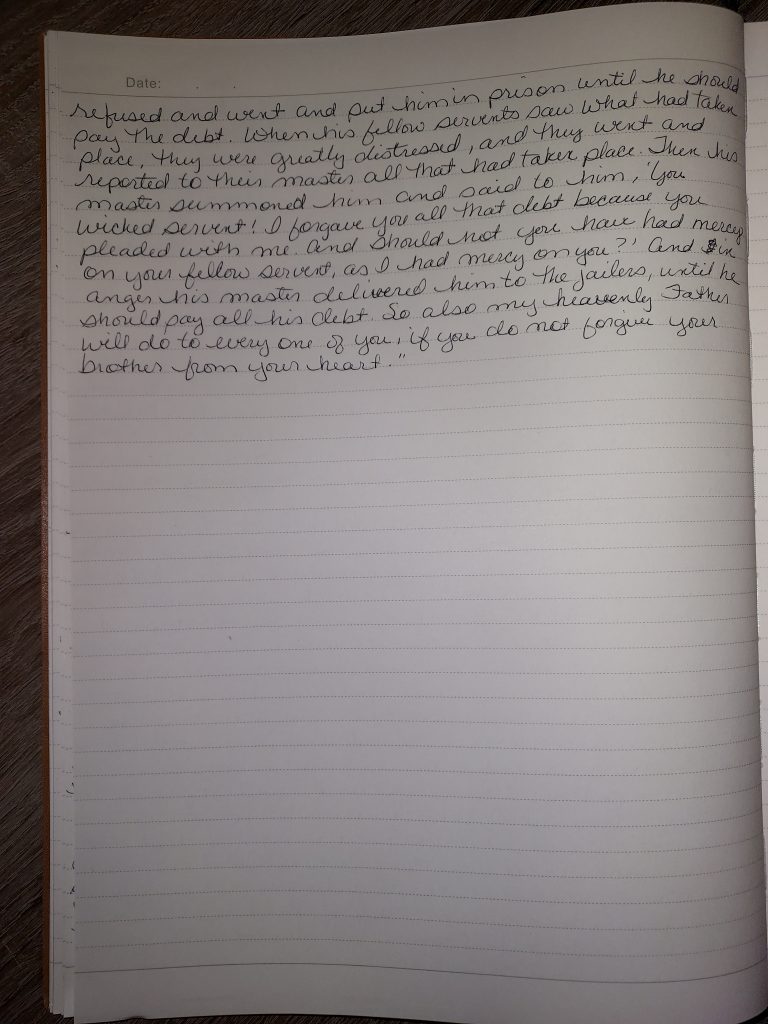 Date:
refused and went and put him in prison until he should
pay the debt. When his fellow servents saw what had taken
place, they were greatly distressed, and they went and
reported to their master all that had taken place. Then his
master summoned him and said to him, 'You
wicked servent! I forgave you all that debt because you
pleaded with me. And should not you have had mercy
on your fellow servent, as I had mercy on you?' And in
anger his master delivered him to the jailers, until he
should pay all his debt. So also my heavenly Father
will do to every one of you, if you do not forgive your
brother from your heart."